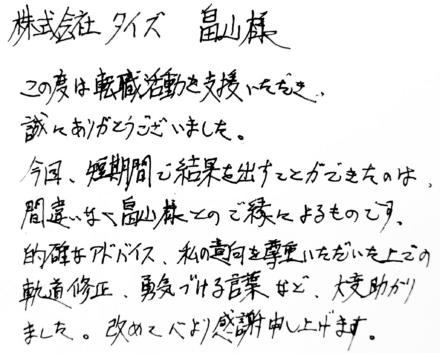 株式会社タイズ 畠山様
この度は転職活動を支援いただき、
誠にありがとうございました。
今回、短期間で結果を出すことができたのは、
間違いなく畠山様とのご縁によるものです。
的確なアドバイス、私の意向を尊重いただいた上での
軌道修正、勇気づける言葉など、大変助かり
ました。改めて心より感謝申し上げます。